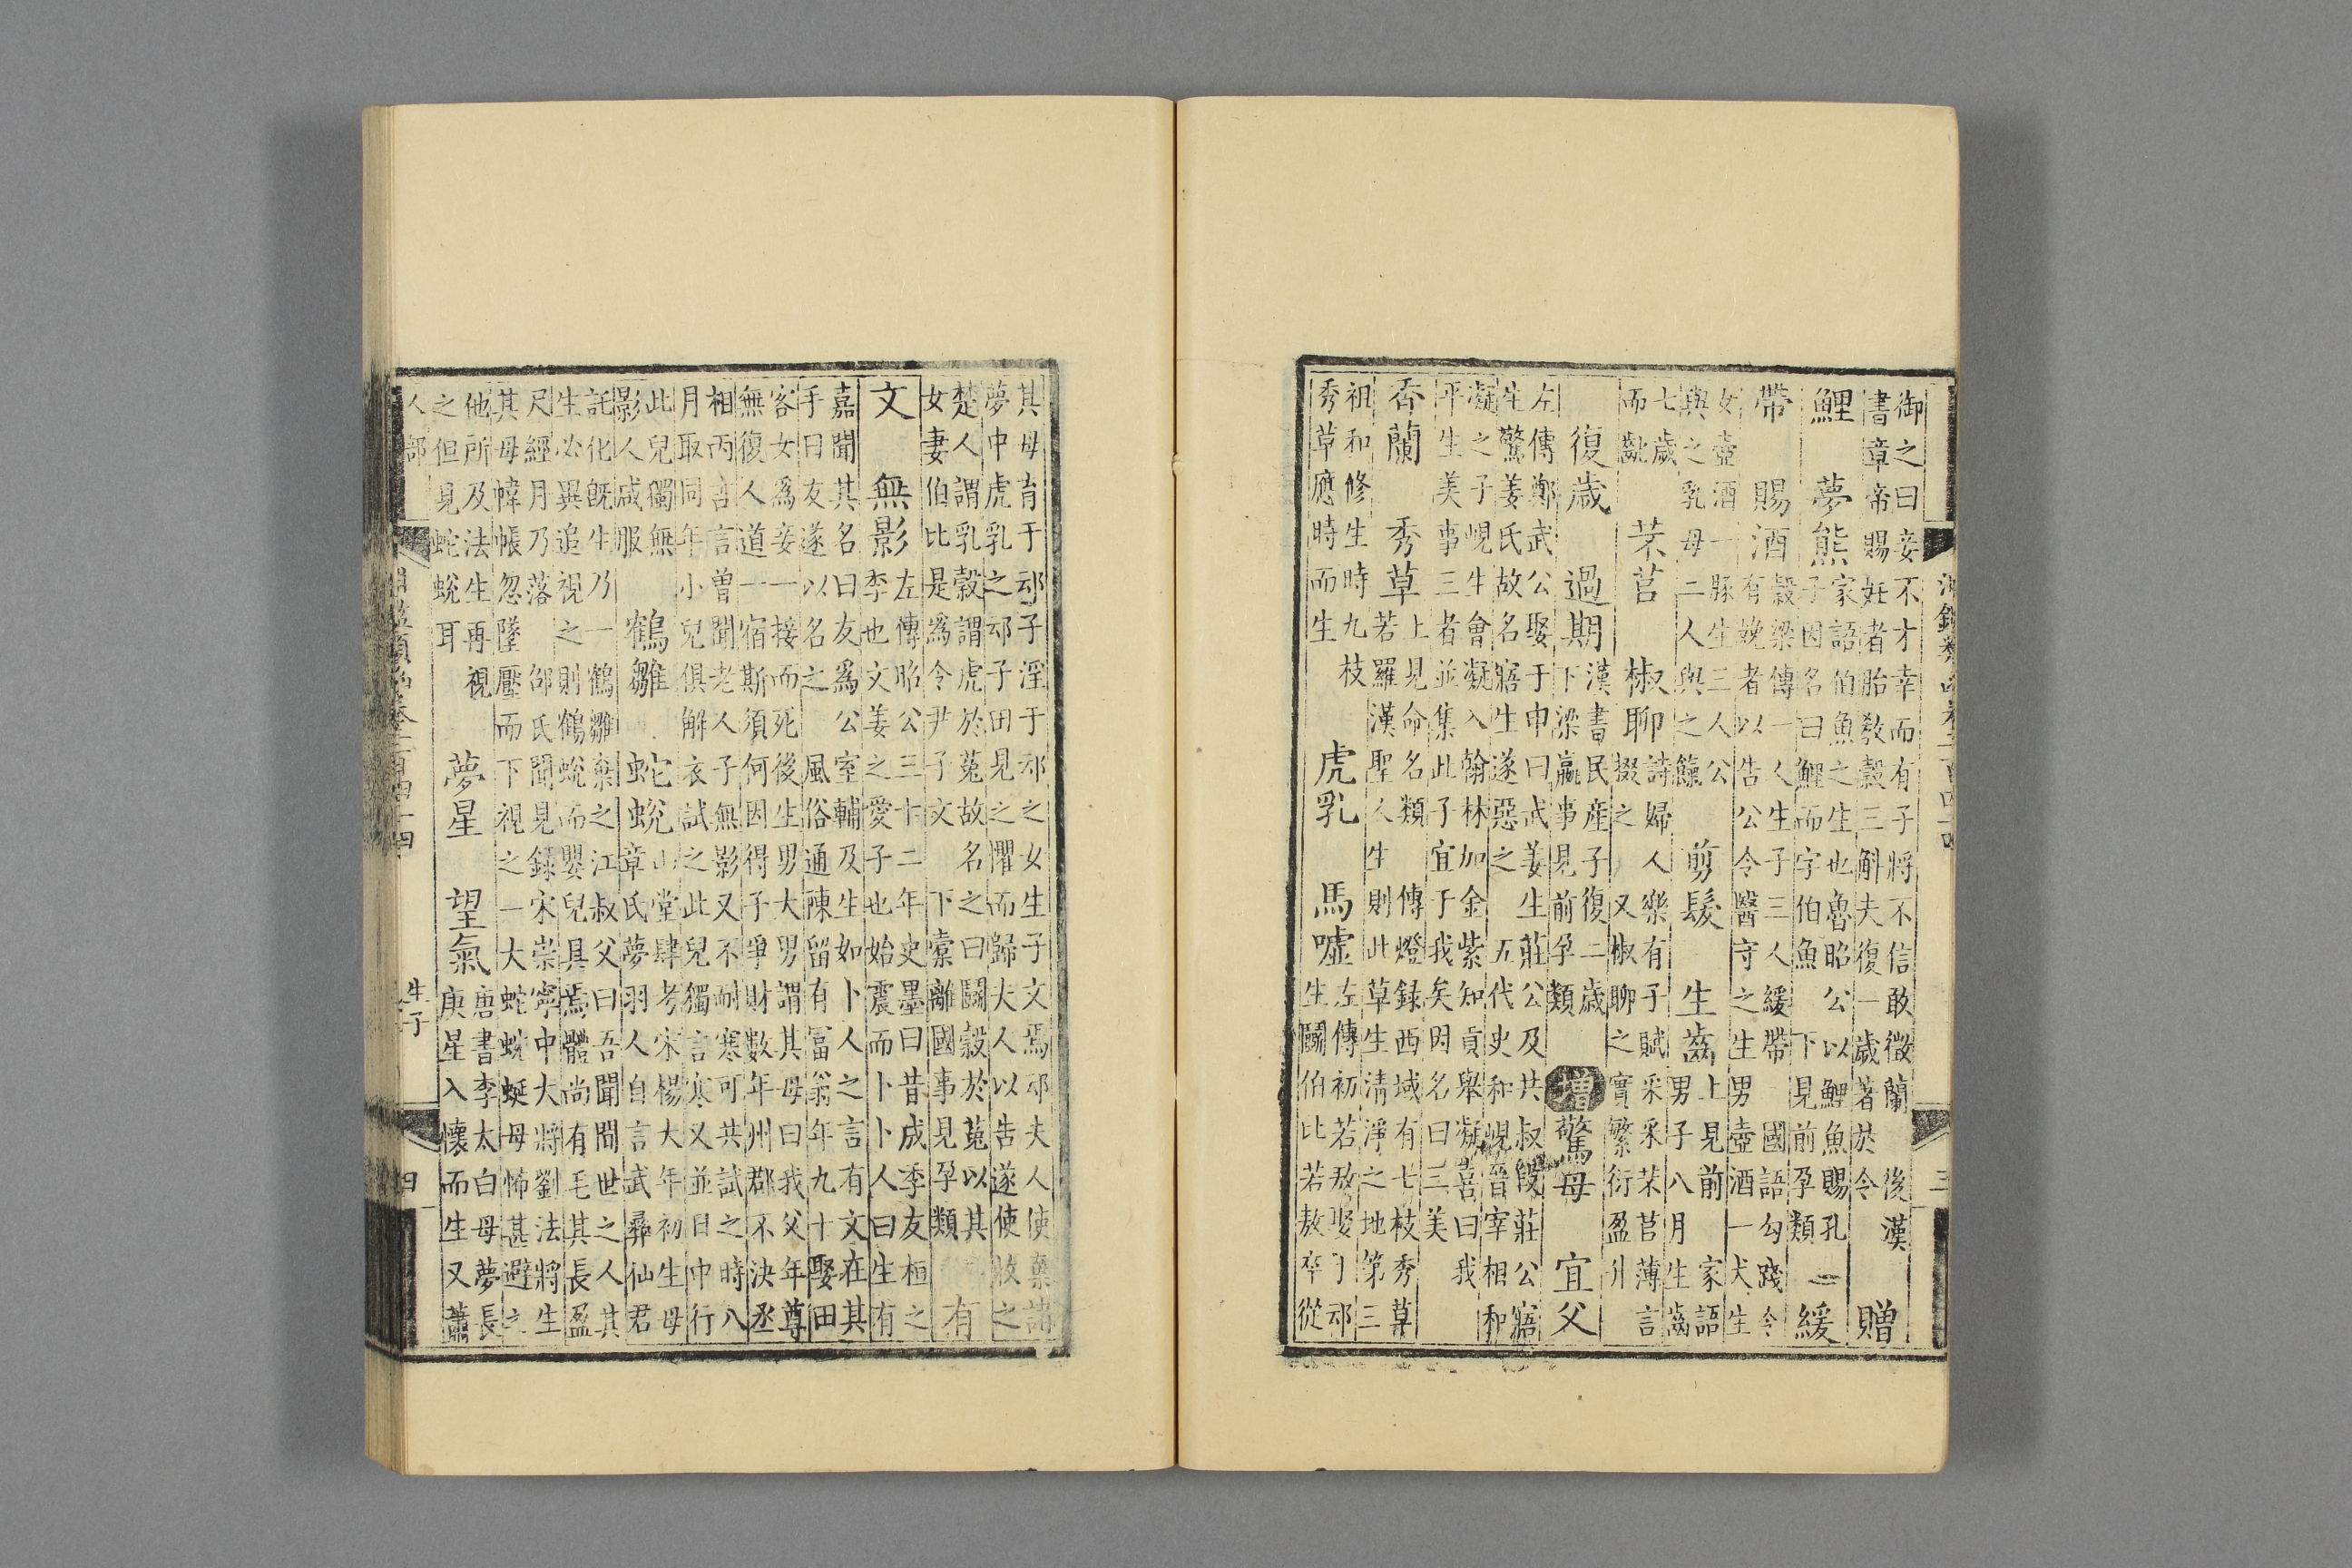 御之曰妾不才幸而有子將不信敢徵蘭 後漢
書章帝賜妊者胎教穀三斛夫復一歲著於令 贈
鯉 夢熊 家語伯魚之生也魯昭公以鯉魚賜孔
子因名曰鯉而字伯魚 下見前孕類 緩
帶 賜酒 穀梁傳一人生子三人緩帶 國語勾踐令
有娩者以告公令醫守之生男壺酒一犬生
女壺酒一豚生三人公
與之乳母二人與之餼 剪髮 生齒 上見前 家語
男子八月生齒
七歲
而齔 芣苢 椒聊 詩婦人樂有子賦采采芣苢薄言
掇之 又椒聊之實繁衍盈升
復歲 過期 漢書民產子復二歲
下梁嬴事見前孕類 增 驚母 宜父
左傳鄭武公娶于申曰武姜生莊公及共叔段莊公寤
生驚姜氏故名寤生遂惡之 五代史和峴晉宰相和
凝之子峴生會凝入翰林加金紫知貢舉凝喜曰我
平生美事三者並集此子宜于我矣因名曰三美
香蘭 秀草 上見命名類 傳燈録西域有七枝秀草
若羅漢聖人生則此草生清淨之地第三
祖和修生時九枝
秀草應時而生 虎乳 馬噓 左傳初若敖娶于䢵
生鬬伯比若敖卒從
淵鑑類函卷二百四十四 三
其母育于䢵子淫于䢵之女生子文焉䢵夫人使棄諸
夢中虎乳之䢵子田見之懼而歸夫人以告遂使收之
楚人謂乳穀謂虎於菟故名之曰鬬穀於菟以其
女妻伯比是為令尹子文 下橐離國事見孕類 有
文 無影 左傳昭公三十二年史墨曰昔成季友桓之
季也文姜之愛子也始震而卜卜人曰生有
嘉聞其名曰友為公室輔及生如卜人之言有文在其
手曰友遂以名之 風俗通陳留有富翁年九十娶田
客女為妾一接而死後生男大男謂其母曰我父年尊
無復人道一宿斯須何因得子爭財數年州郡不決丞
相丙吉言曾聞老人子無影又不耐寒可共試之時八
月取同年小兒俱解衣試之此兒獨言寒又並日中行
此兒獨無
影人咸服 鶴雛 蛇蛻 山堂肆考宋楊大年初生母
章氏夢羽人自言武彝仙君
託化旣生乃一鶴雛棄之江叔父曰吾聞間世之人其
生必異追視之則鶴蛻而嬰兒具焉體尚有毛其長盈
尺經月乃落 邵氏聞見録宋崇寧中大將劉法將生
其母幃帳忽墜壓而下視之一大蛇蜿蜒母怖甚避之
他所及法生再視
之但見蛇蛻耳 夢星 望氣 唐書李太白母夢長
庚星入懷而生又蕭
人部 淵鑑類函卷二百四十四 生子 四